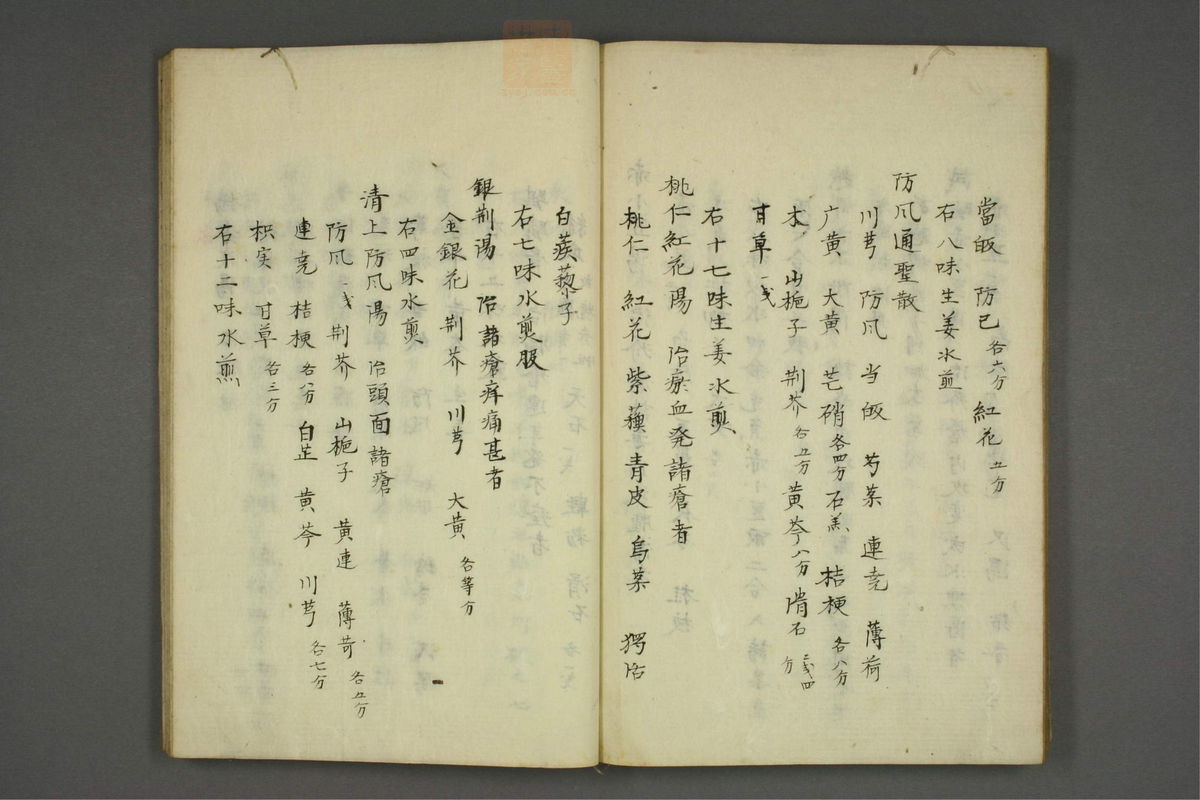 當皈 防已 各六分 紅花 五分
右八味生姜水煎
防风通聖散
川芎 防风 当皈 芍薬 連尭 薄荷
广黄 大黄 芒硝 各四分 石羔 桔梗 各八分
木 山梔子 荆芥 各五分 黄芩 八分 滑石 二戋四分
甘草 一戋
右十七味生姜水煎
桃仁紅花陽 治瘀血発諸瘡者
桃仁 紅花 紫蘓 青皮 烏薬 独活
白蒺藜子
右七味水煎服
銀荆湯 治諸瘡痒痛甚者
金銀花 荆芥 川芎 大黄 各等分
右四味水煎
清上防风湯 治頭面諸瘡
防风 一戋 荆芥 山梔子 黄連 薄苛 各五分
連尭 桔梗 各八分 白芷 黄芩 川芎 各七分
枳実 甘草 各三分
右十二味水煎